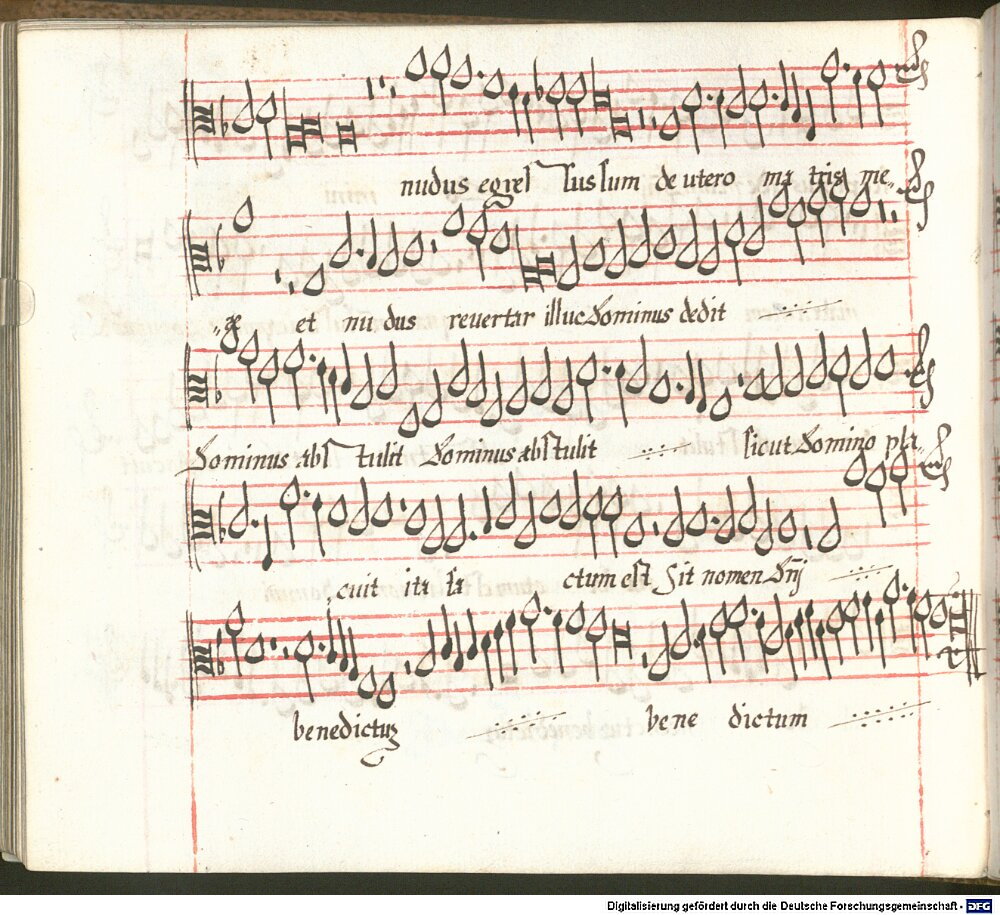 nudus egres susſum de utero ma tris me„
„æ et nu dus reuertar illuc Dominus dedit
Dominus abſ tulit Dominus abſtulit ſicut Domino pla
„cuit ita fa ctum eſt Sit nomen Dnj
benedictuʒ bene dictum
Digitalisierung gefördert durch die Deutsche Forschungsgemeinschaft - DFG